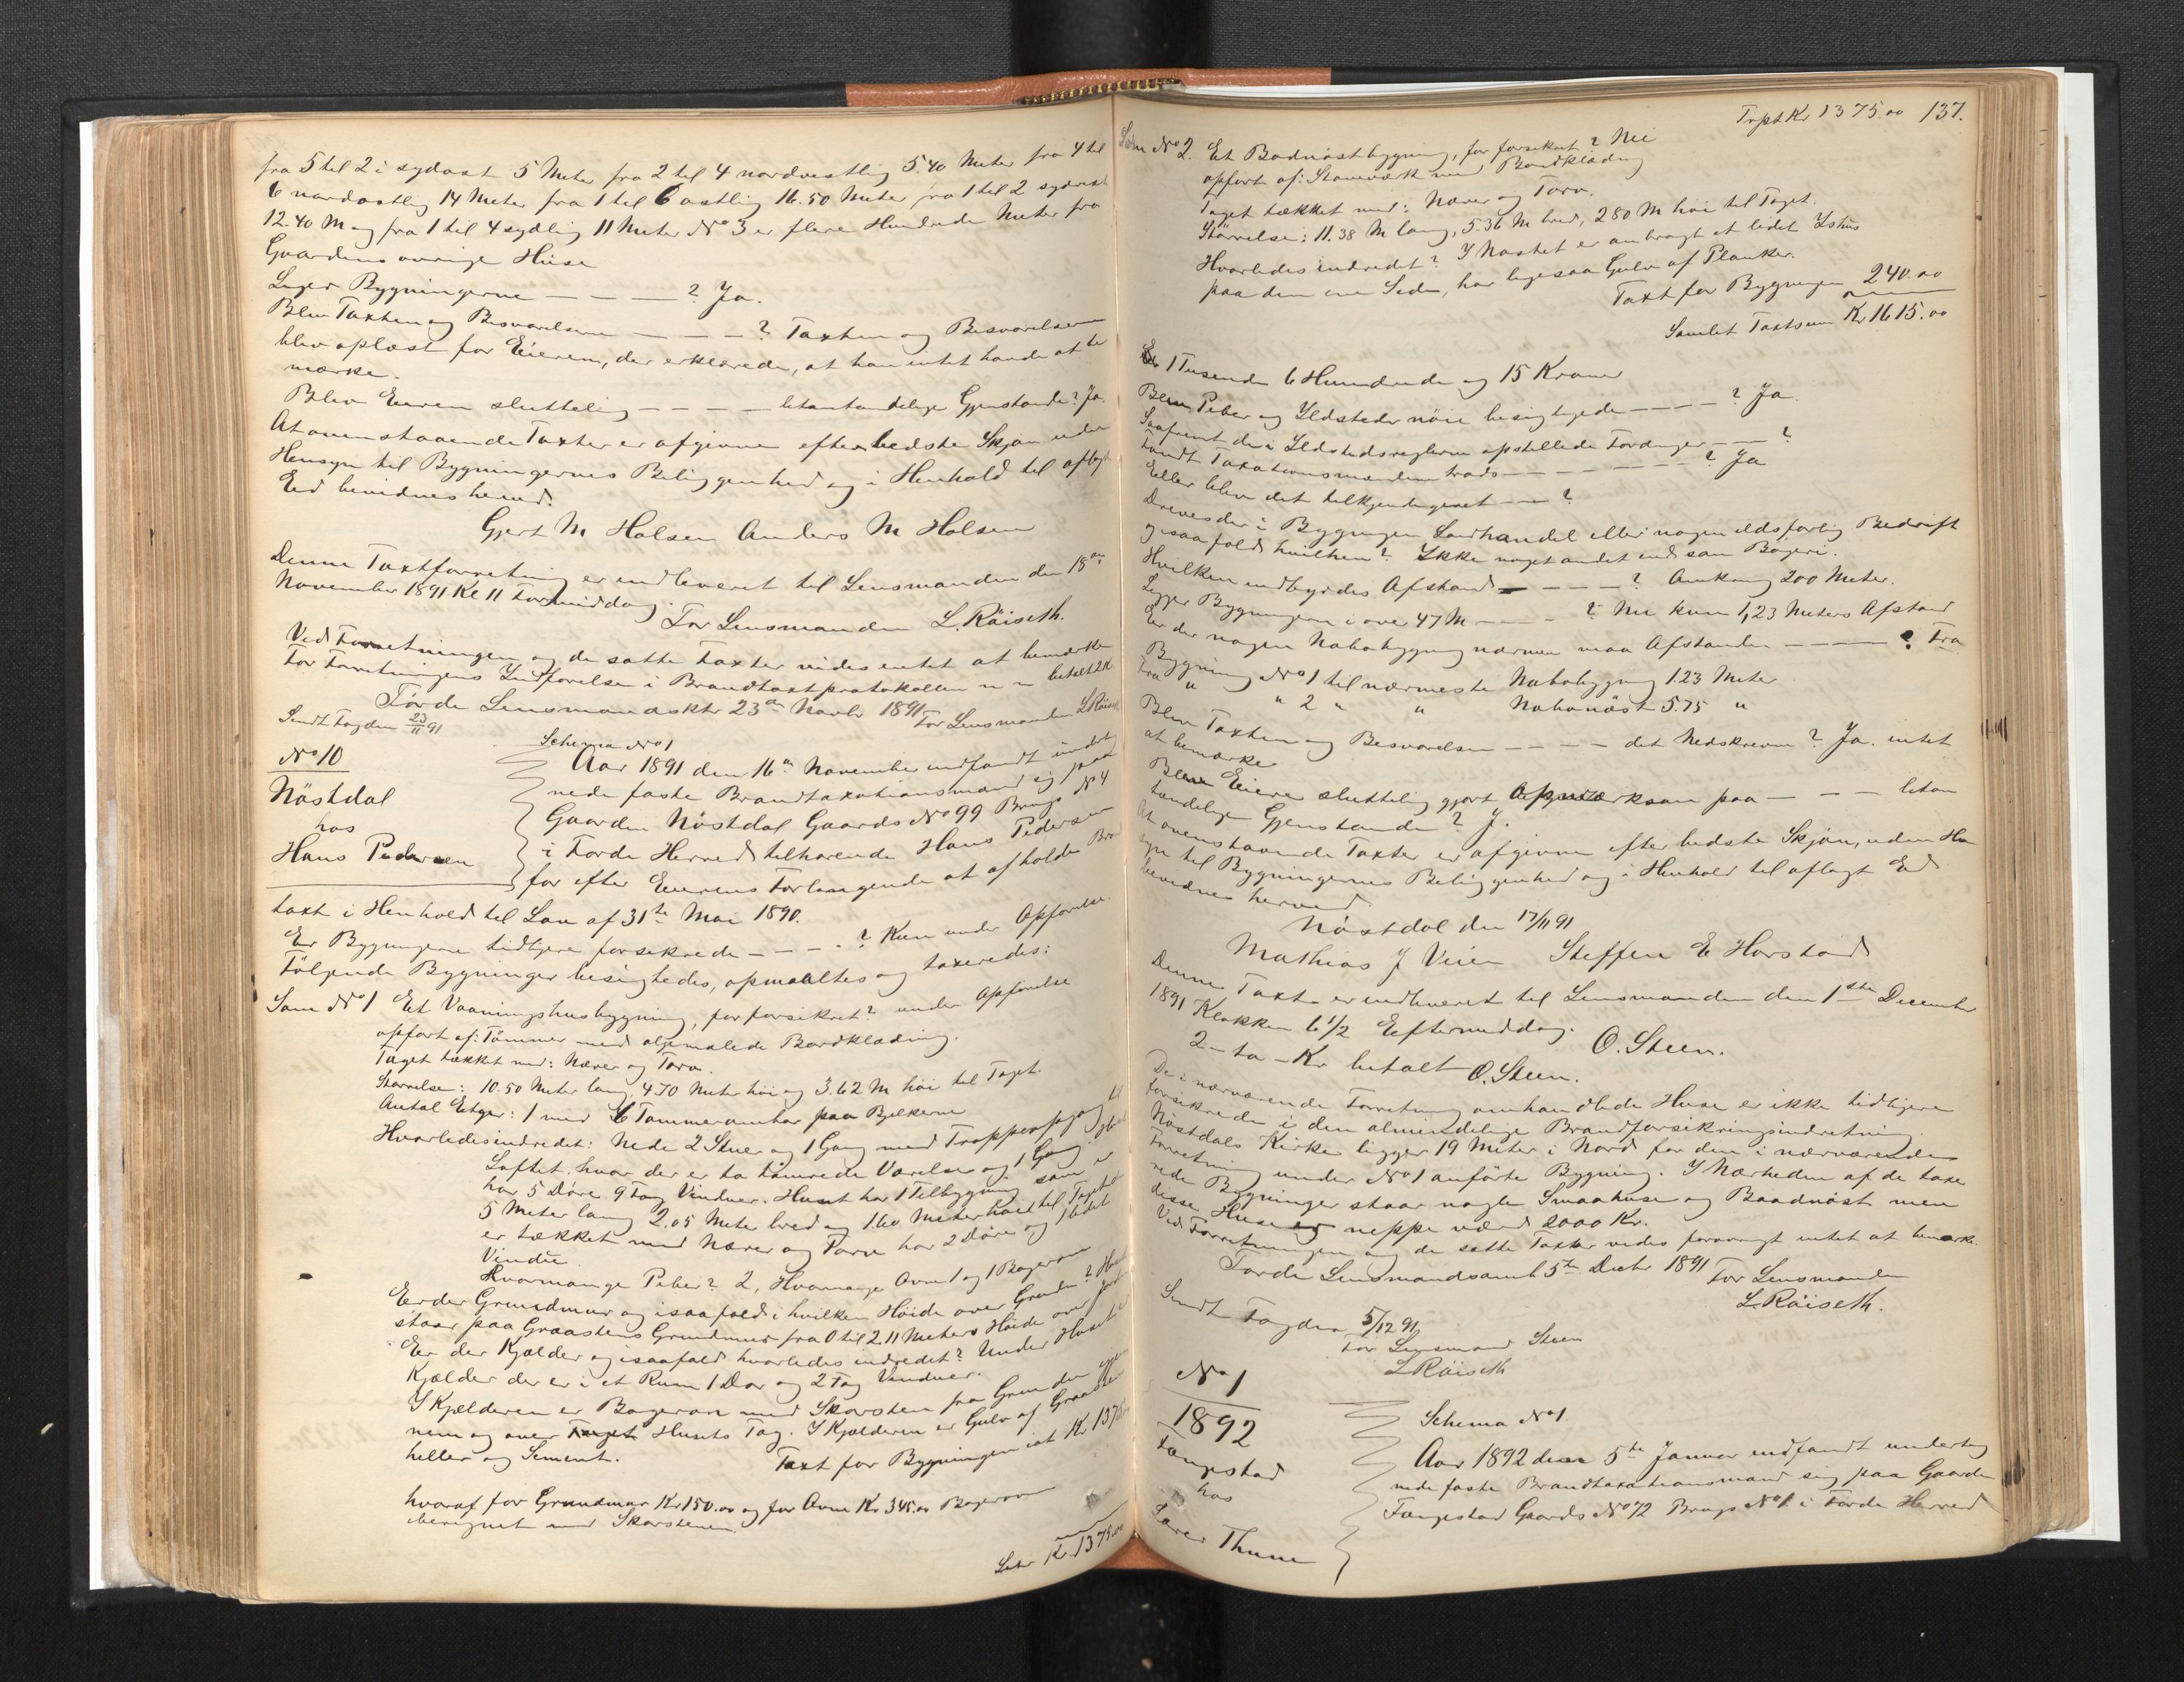 fra 5 til 2 i sydost 5 Meter fra 2 til 4 nordvestlig 5.40 Meter fra 4 til
6 nordostlig 14 Meter fra 1 til 6 ostlig 16.50 Meter fra 1 til 2 sydvest
12.40 M og fra 1 til 4 sydlig 11 Meter No 3 er flere Hundrede Meter fra
Gaardens ovrige Huse
Liger Bygningerne — — — ? Ja.
Blev Taxten og Besvarelsen — — — ? Taxten og Besvarelsen
blev oplæst for Eieren, der erklærede, at han intet havde at be
mærke.
Blev Eieren sluttelig — — — — letantændelige Gjenstande? Ja.
At ovenstaaende Taxter er afgivne efter bedste Skjøn uden
Hensyn til Bygningernes Beliggenhed og i Henhold til aflagt
Ed bevidnes herved.
Gjert M Holsen Anders M Holsen
Denne Taxtforretning er indleveret til Lensmanden den 18de
November 1891 Kl 11 Formiddag.
For Lensmanden L. Röiseth.
Ved Forretningen og de satte Taxter vides intet at bemærke
For Forretningens Indførelse i Brandtaxtprotokollen betalt 2 Kr
Førde Lensmandsktr 23de Novbr 1891. For Lensmanden L Röiseth
Sendt Fogden 23/11 91
No 10 Schema No 1
Nöstdal
hos
Hans Pedersen
Aar 1891 den 16de November indfandt underteg
nede faste Brandtaxationsmænd sig paa
Gaarden Nöstdal Gaards No 99 Brugs No 4
i Førde Herred tilhørende Hans Pedersen
for efter Eierens Forlangende at afholde Brand
taxt i Henhold til Lov af 31te Mai 1890.
Er Bygningerne tidligere forsikrede — — — ? Kun under Opførelse.
Følgende Bygninger besigtedes, opmaaltes og taxeredes:
Som No 1 Et Vaaningshusbygning, før forsikret? under Opførelse
opført af: Tömmer med oljemalede Bordklædning.
Taget tækket med: Næver og Torv.
Størrelse: 10.50 Meter lang, 4.70 Meter höi og 3.62 M höi til Taget.
Antal Etger: 1 med 6 Tømmeromhar paa Bjelkerne
Hvorledes indredet: Nede 2 Stuer og 1 Gang med Trappeopgang til
Loftet, hvor der er to tömrede Værelser og 1 Gang
har 5 Döre 9 Fag Vinduer. Huset har 1 Tilbygning som er
5 Meter lang 2.05 Meter bred og 1.60 Meter höi til Taget
er tækket med Næver og Torv har 2 Döre og 1 lidet
Vindu
Hvormange Piber? 2, Hvormange Ovne 1 og 1 Bagerovn
Er der Grundmur og isaafald i hvilken Höide over Grunden? Huset
staar paa Graastens Grundmur fra 0 til 2.11 Meters Höide over Jorden
Er der Kjelder og isaafald hvorledes indredet? Under Huset
Kjelder der er i et Rum 1 Dør og 2 Fag Vinduer.
I Kjelderen er Bagerovn med Skorsten fra Grunden gjen
nem og over Huset Husets Tag. I Kjelderen er Gulv af Graasten
heller og Sement. Taxt for Bygningen ialt Kr 1375.00
hvoraf for Grundmur Kr 150.00 og for Ovne Kr 345.00 Bagerovn
beregnet med Skorstenen.
Latr Kr. 1375.00
Trpt Kr 1375.00 137.
Som No 2. Et Baadnöstbygning, før forsikret? Nei
opført af: Stavværk med Bordklædning
Taget tækket med: Næver og Torv.
Størrelse: 11.38 M lang, 5.36 M bred, 2.80 M höi til Taget.
Hvorledes indredet? I Nöstet er anbragt et lidet Ishus
paa den ene Side, har ligesaa Gulv af Planker.
Taxt for Bygningen 240.00
Samlet Taxtsum Kr 1615.00
1 Tusende 6 Hundrede og 15 Kroner
Blev Piber og Ildsteder nöie besigtigede — — — ? Ja.
Saafremt de i Ildstedsreglerne opstillede Fordringer — — ?
fandt Taxationsmændene trods — — — — ? Ja
Eller blev det tilkjendegivet — — ?
Dreves der i Bygningen Landhandel eller nogen ildsfarlig Bedrift
og isaafald hvilken? Ikke noget andet end som Bageri.
Hvilken indbyrdes Afstand — — — — ? Omkring 200 Meter.
Ligger Bygningen i over 47 M — — — ? Nei kun 1,23 Meters Afstand
Er der nogen Nabobygning nærmere naar Afstanden — — — ? Fra
Bygning No 1 til nærmeste Nabobygning 1.23 Meter
fra " " 2 " " Nabonöst 5.75 "
Blev Taxten og Besvarelsen — — — — det Nedskrevne? Ja. intet
at bemærke
Blev Eieren sluttelig gjort Opmærksom paa — — — letan
tændelige Gjenstande? J.
At ovenstaaende Taxter er afgivne efter bedste Skjøn, uden Hen
syn til Bygningernes Beliggenhed og i Henhold til aflagt Ed
bevidnes herved
Nöstdal den 17/11 91
Mathias J Veien Steffen E Horstad
Denne Taxt er indleveret til Lensmanden den 1ste December
1891 Klokken 6 1/2 Eftermiddag. O. Steen.
2 - to - Kr betalt O. Steen.
De i nærværende Forretning omhandlede Huse er ikke tidligere
forsikrede i den almindelige Brandforsikringsindretning.
Nöstdals Kirke ligger 19 Meter i Nord for den i nærværende
Forretning under No 1 anførte Bygning. I Nærheden af de taxe
rede Bygninger staar nogle Smaahuse og Baadnöst men
disse Huse er neppe værd 2000 Kr.
Ved Forretningen og de satte Taxter vides forøvrigt intet at bemærke.
Førde Lensmandsamt 5te Decbr 1891 For Lensmanden
L. Röiseth.
Sendt Fogden 5/12 91
For Lensmand Steen
L Röiseth
No 1
1892
Fangestad
hos
Thune
Schema No 1.
Aar 1892 den 5te Januar indfandt underteg
nede faste Brandtaxationsmænd sig paa Gaarden
Fangestad Gaards No 72 Brugs No 1 i Førde Herred